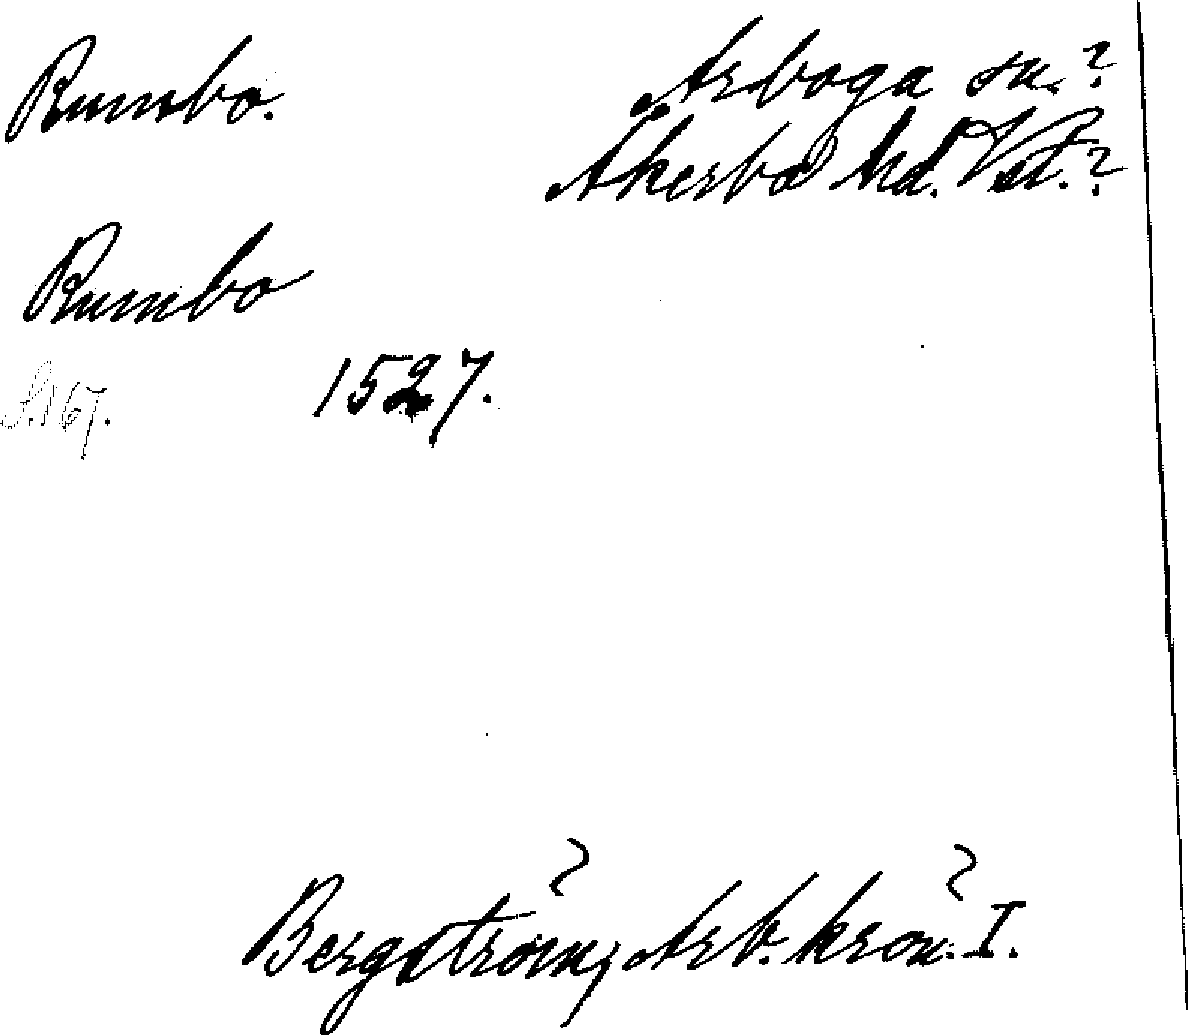 Rumbo. Arboga sn.?
Åkerbo hd. Vstl.?
Rumbo
S. 167. 1527.
Bergström, Arb. krön. I.